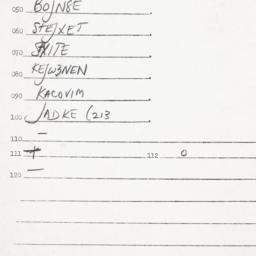 050 BOJN8E
060 STEJXET
070 SXITE
080 KEJW3NEN
090 KACOVIM
100 JADKE (213
110 —
111 + 112 0
120 —